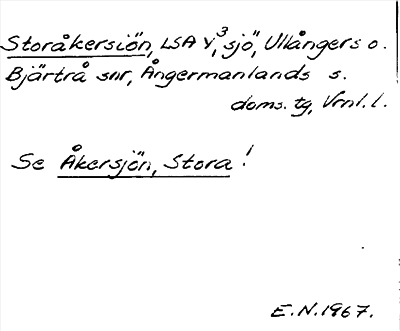 Storåkersjön, LSA V, 3 sjö, Ullångers o.
Bjärtrå snr, Ångermanlands s.
doms. tg, Vrnl. l.
Se Åkersjön, Stora!
E.N. 1967.